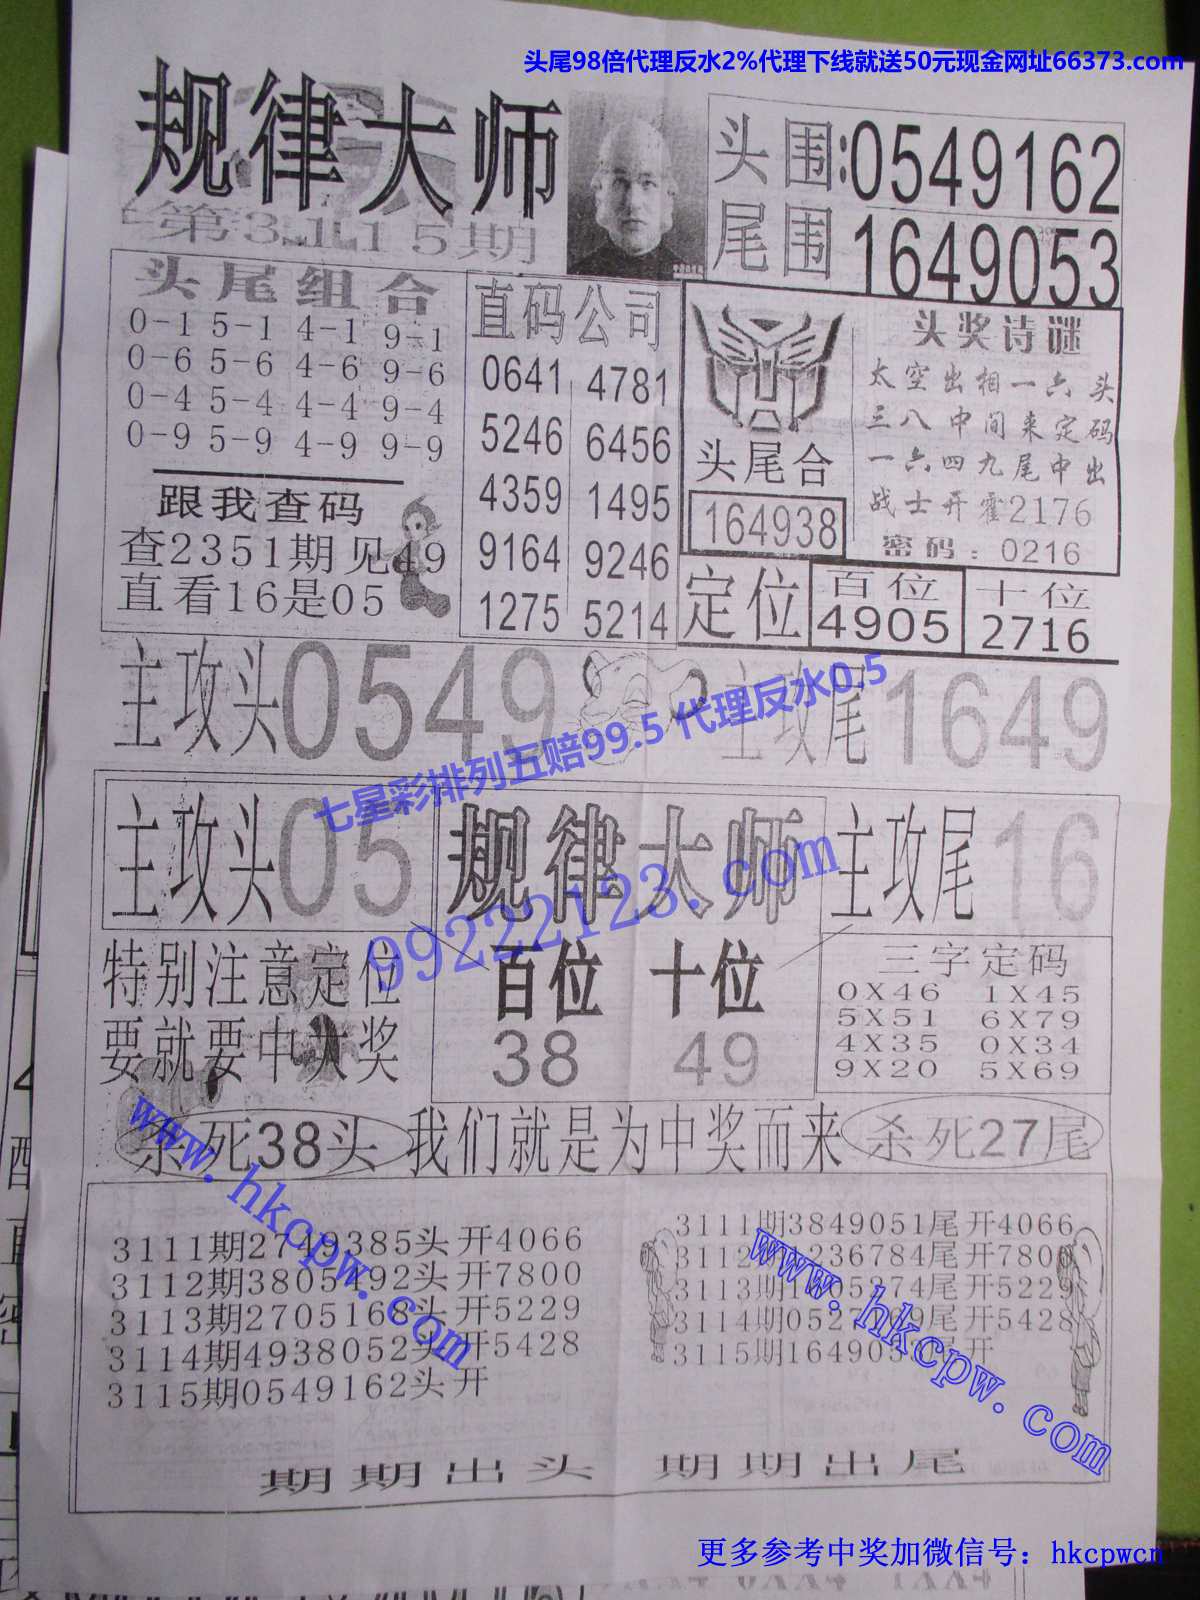 头尾98倍代理反水2%代理下线就送50元现金网址66373.com
规律大师
第3115期
头围:0549162
尾围1649053
头尾组合
0-1 5-1 4-1 9-1
0-6 5-6 4-6 9-6
0-4 5-4 4-4 9-4
0-9 5-9 4-9 9-9
跟我查码
查2351期见49
直看16是05
直码公司
0641 4781
5246 6456
4359 1495
9164 9246
1275 5214
头尾合
164938
头奖诗谜
太空出相一六头
三八中间来定码
一六四九尾中出
战士开霍2176
密码：0216
定位
百位
4905
十位
2716
主攻头0549
主攻尾1649
七星彩排列五赔99.5 代理反水0.5
99222123.com
主攻头05
规律大师
主攻尾16
特别注意定位
要就要中大奖
百位 十位
38 49
三字定码
0X46 1X45
5X51 6X79
4X35 0X34
9X20 5X69
杀死38头
我们就是为中奖而来
杀死27尾
3111期2749385头开4066
3112期3805492头开7800
3113期2705168头开5229
3114期4938052头开5428
3115期0549162头开
3111期3849051尾开4066
3112 236784尾开7800
3113期1 05274尾开5229
3114期0527 69尾开5428
3115期1649053尾开
www.hkcpw.com
www.hkcpw.com
期期出头 期期出尾
更多参考中奖加微信号：hkcpwcn